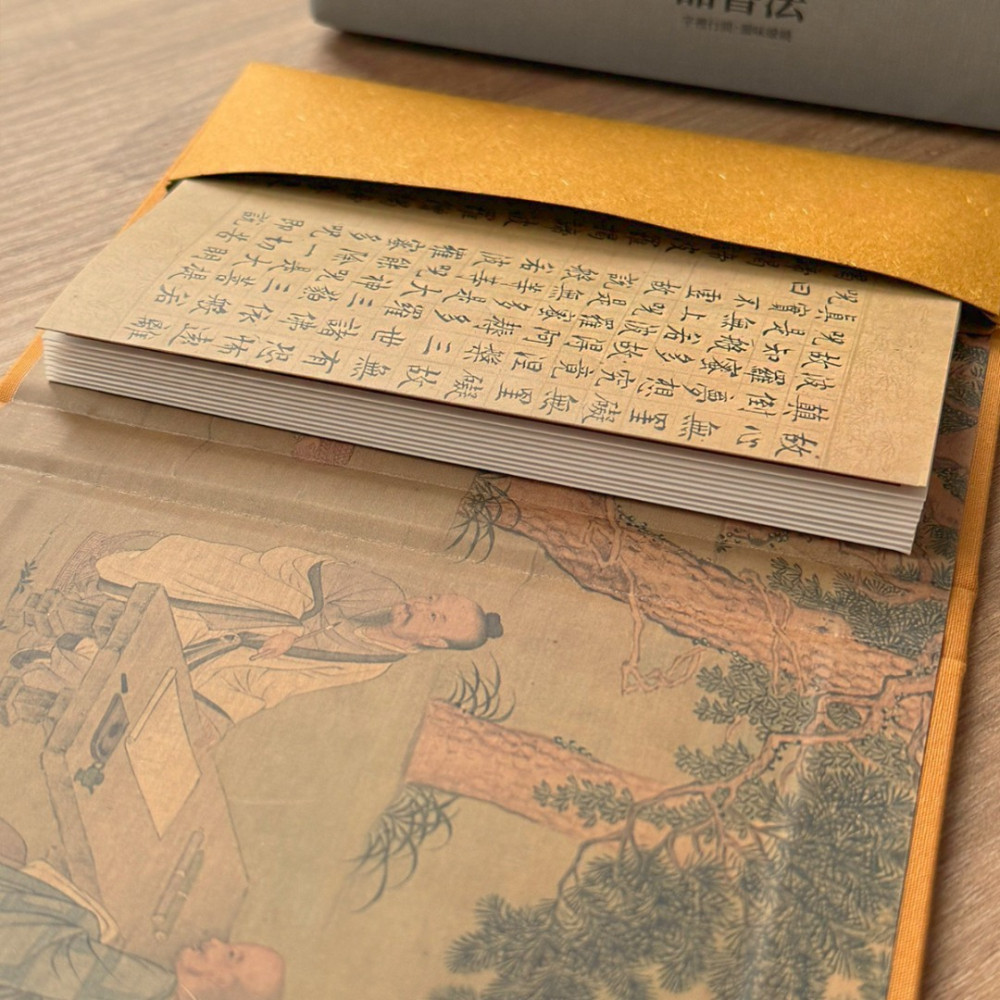 故心無罣礙無罣礙故無有恐怖遠離
顛倒夢想究竟涅槃三世諸佛依般若
波羅蜜多故得阿耨多羅三藐三菩提
故知般若波羅蜜多是大神呪是大明
呪是無上呪是無等等呪能除一切苦
真實不虛故說般若波羅蜜多呪即說
呪曰
書法